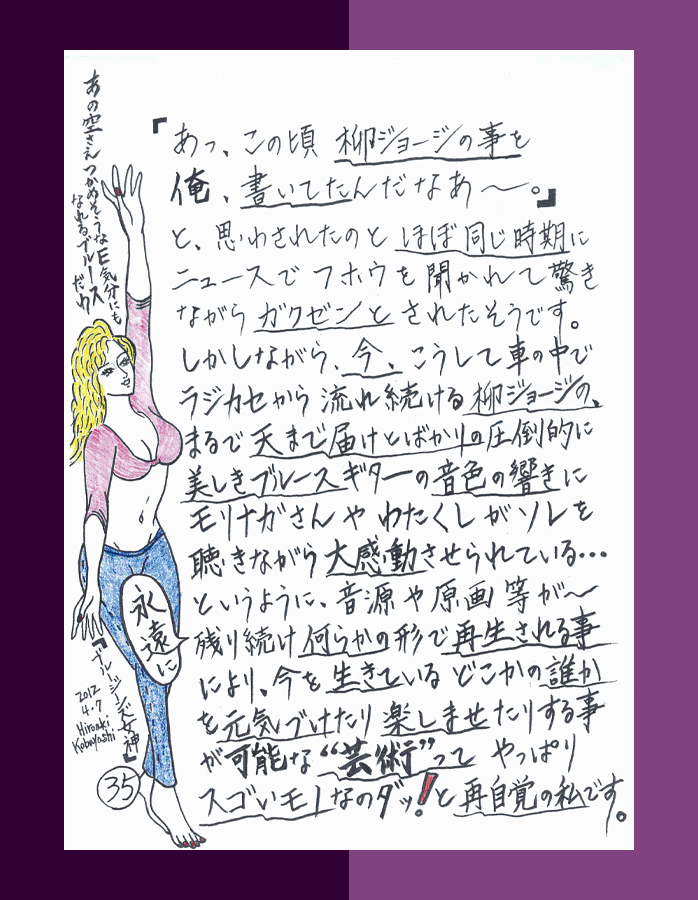 あの空さえつかめそうなE気分にも
なれるブルースだ
『あっ、この頃 柳ジョージの事を
俺、書いてたんだなあ〜。』
と、思わされたのと ほぼ同じ時期に
ニュースで フホウを 聞かれて 驚き
ながら ガクゼンと されたそうです。
しかしながら、今、こうして 車の中で
ラジカセから 流れ続ける 柳ジョージの、
まるで 天まで届けとばかりの圧倒的に
美しきブルースギターの音色の響きに
モリナガさんや わたくしがソレを
聴きながら 大感動させられている…
というように、音源や原画等が〜
残り続け 何らかの形で 再生される事
により、今を 生きている どこかの誰か
を 元気づけたり 楽しませたりする事
が可能な “芸術”って やっぱり
スゴいモノなのダッ!と 再自覚の私です。
永遠に
『ブルージーンズ女神』
2012
4.7
Hiroaki
Kobayashi
35